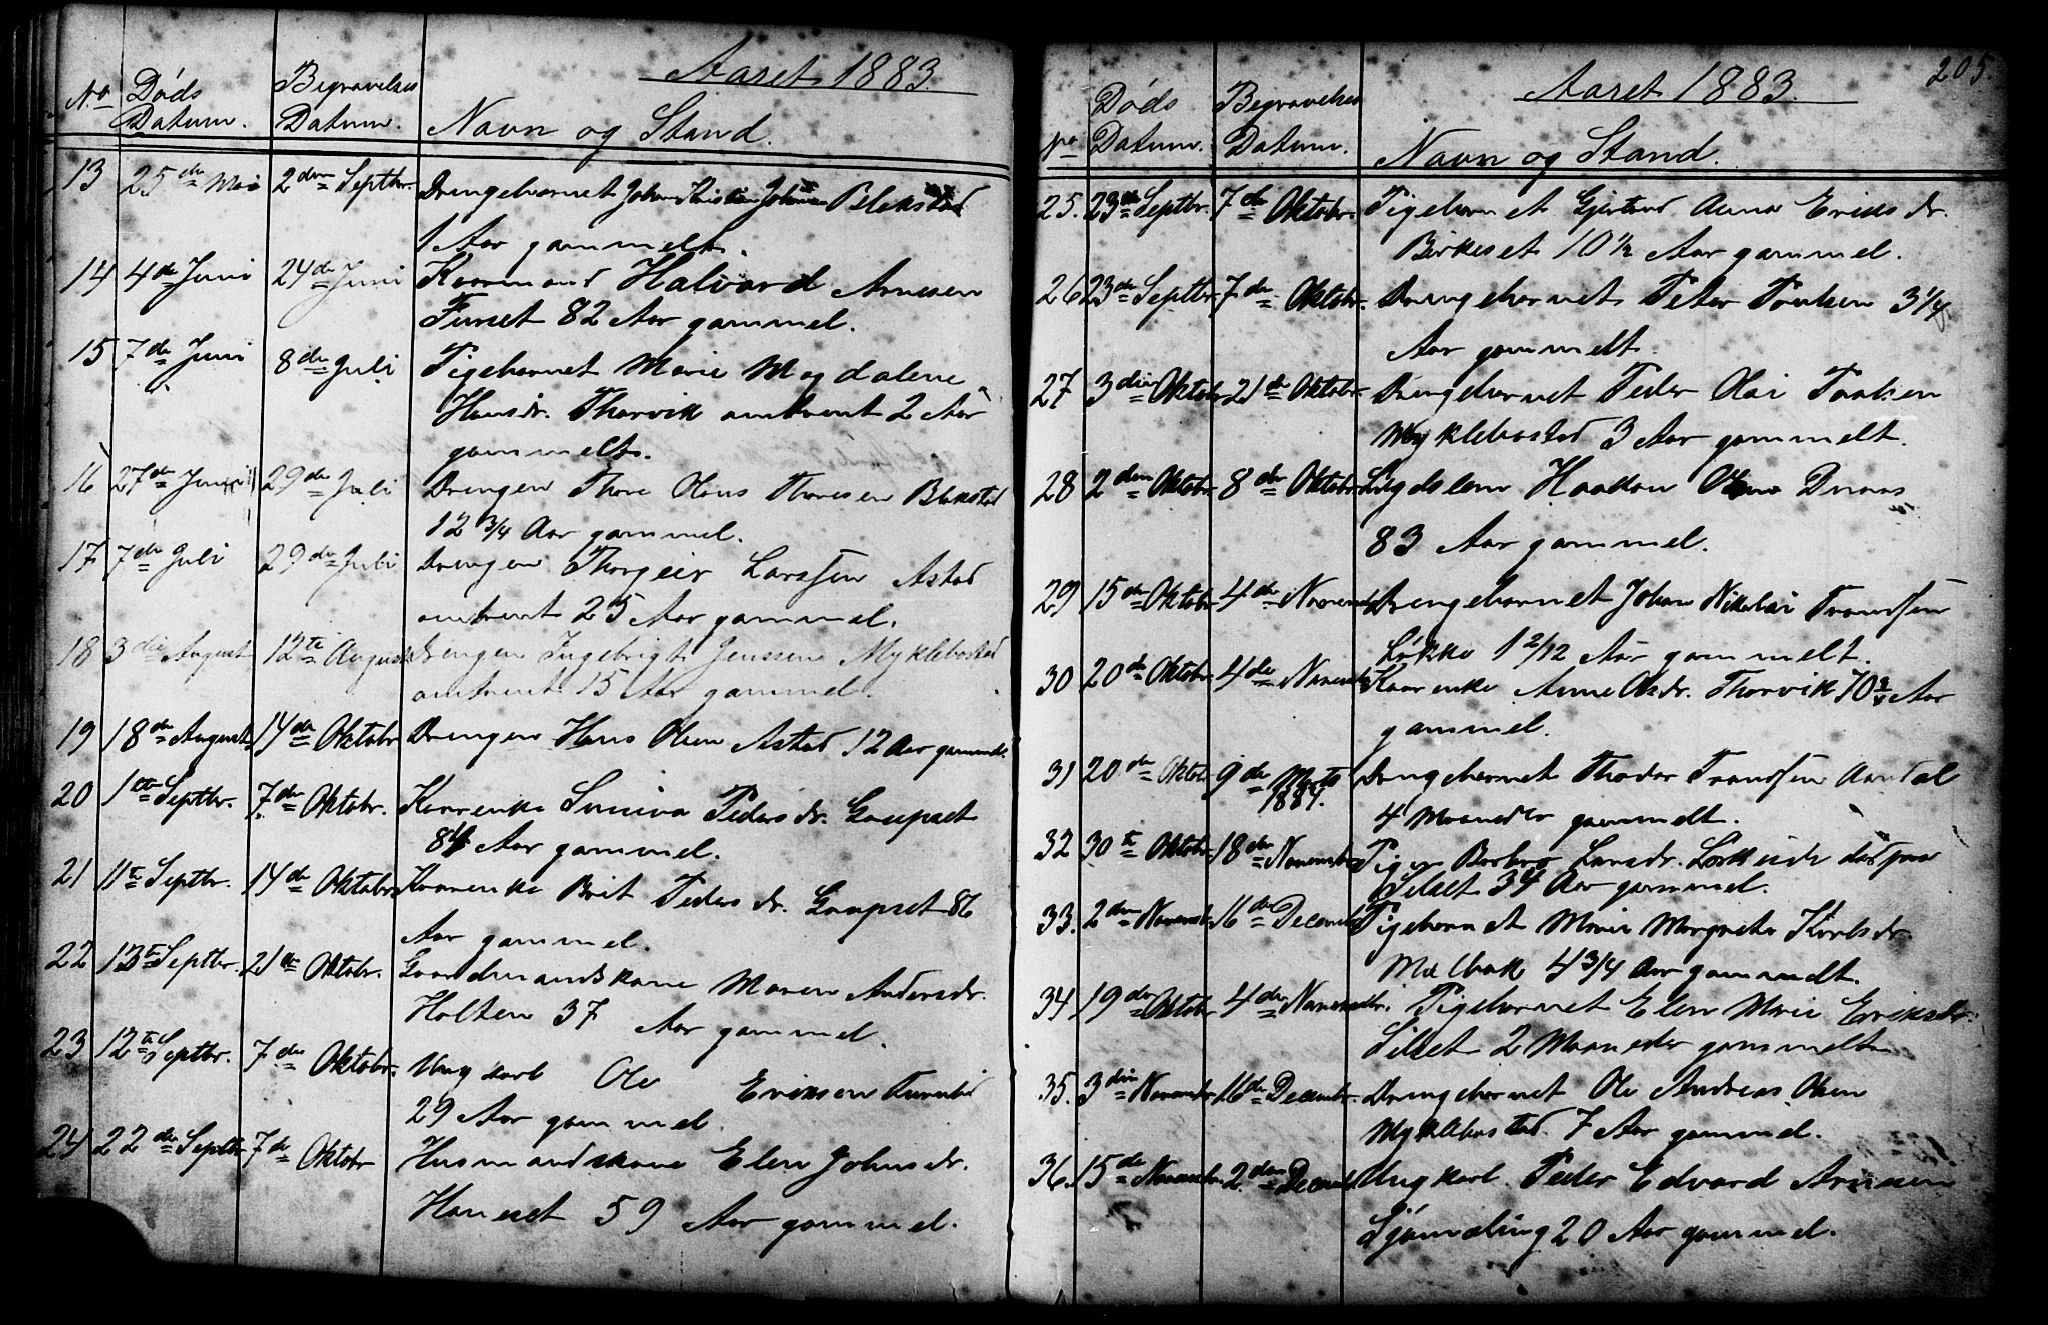 Aaret 1883.
No Døds Datum. Begravelses Datum. Navn og Stand.
13 25de Mai 2den Septbr. Drengebarnet Johan Kristian Johnsen Blakstad
1 Aar gammelt.
14 4de Juni 24de Juni Kaarmand Halvard Arnesen
Furset 82 Aar gammel.
15 7de Juni 8de Juli Pigebarnet Marie Magdalene
Hansdr. Thorvik omtrent 2 Aar
gammelt.
16 27de Juni 29de Juli Drengen Thore Olaus Thoresen Blakstad
12 3/4 Aar gammel.
17 7de Juli 29de Juli Drengen Thorgeir Larssen Astad
omtrent 25 Aar gammel.
18 3die August 12te August Drengen Ingebrigt Jenssen Myklebostad
omtrent 15 Aar gammel.
19 18de August 14de Oktobr. Drengen Hans Olsen Astad 12 Aar gammel.
20 1ste Septbr. 7de Oktobr. Kaarenke Suniva Pedersdr. Gaupset
84 Aar gammel.
21 11te Septbr. 14de Oktobr. Kaarenke Brit Pedersdr. Gaupset 86
Aar gammel.
22 13te Septbr. 21de Oktobr. Gaardmandskone Maren Andersdr.
Holten 37 Aar gammel.
23 12te Septbr. 7de Oktobr. Ungkarl Ole Eriksen
29 Aar gammel.
24 22de Septbr. 7de Oktobr Husmandskone Elen Johnsdr.
Haneset 59 Aar gammel.
205.
Aaret 1883.
No Døds Datum. Begravelses Datum. Navn og Stand.
25. 23de Septbr. 7de Oktobr. Pigebarnet Gjertrud Anna Eriksdr.
Birkeset 10 1/2 Aar gammel.
26 23de Septbr. 7de Oktobr. Drengebarnet Peter Paulsen 3 1/4
Aar gammelt.
27 3die Oktobr. 21de Oktobr. Drengebarnet Peder Olai Paulsen
Myklebostad 3 Aar gammelt.
28 2den Oktobr. 8de Oktobr. Lægdslem Haakon
83 Aar gammel.
29 15de Oktobr 4de Novembr. Drengebarnet Johan Nikolai Trondsen
Løkke 1 2/12 Aar gammelt.
30 20de Oktobr. 4de Novembr. Kaarenke Anne Olsdr. Thorvik 70 Aar
gammel.
31 20de Oktobr. 9de Marts 1884. Drengebarnet Thodor Trondsen Aandal
4 Maaneder gammelt.
32 30te Oktobr. 18de Novembr. Pige Barbro Larsdr. død paa
Silset 34 Aar gammel.
33. 2den Novembr. 16de Decembr. Pigebarnet Marie Margrete Karlsdr.
Mælbak 4 3/4 Aar gammelt.
34 19de Oktobr 4de Novembr. Pigebarnet Elen Marie Eriksdr.
Silset 2 Maaneder gammelt.
35. 3die Novembr. 16de Decembr. Drengebarnet Ole Andreas Olsen
Myklebostad 7 Aar gammel.
36. 15de Novembr. 2den Decembr. Ungkarl Peder Edvard Arnesen
Gjømøling 20 Aar gammel.